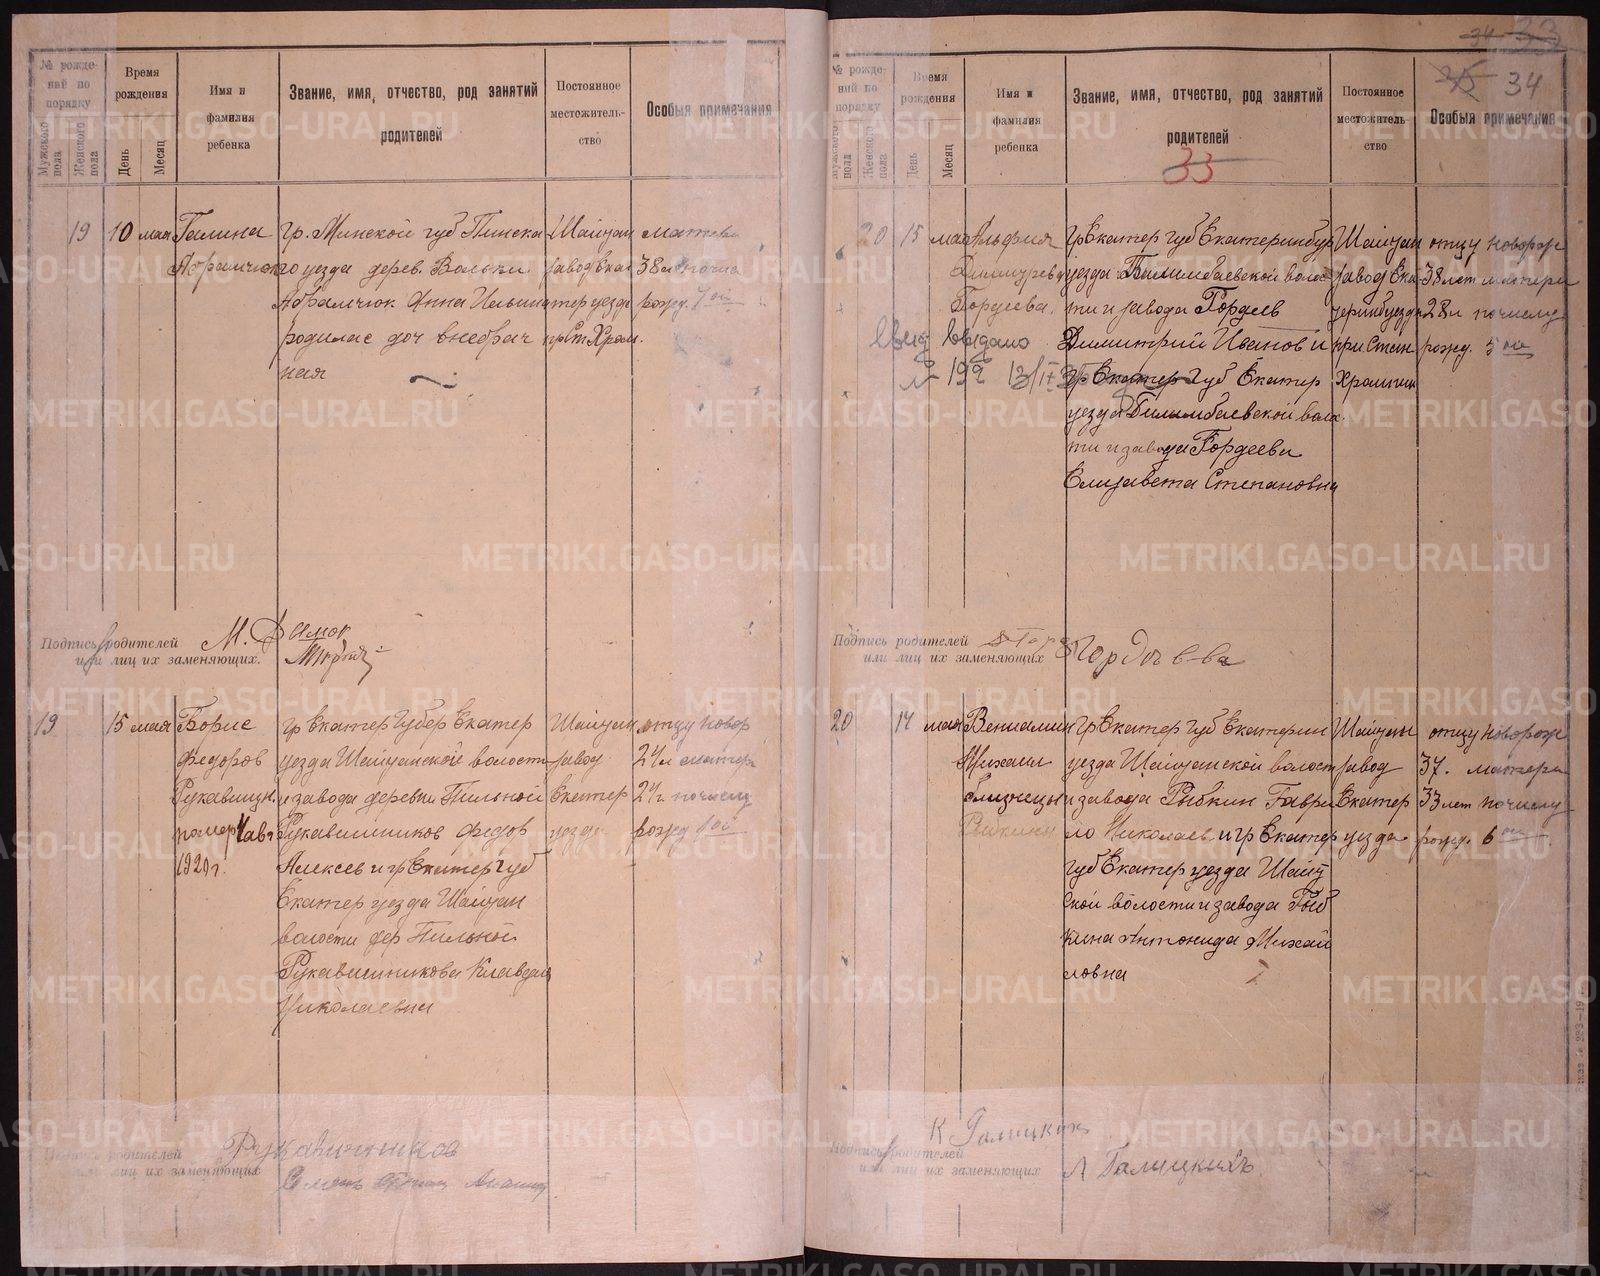 № рождений по порядку
Мужского пола
Женского пола
Время рождения
День
Месяц
Имя и фамилия ребенка
Звание, имя, отчество, род занятий родителей
Постоянное местожительство
Особыя примечания
19
10 мая
Галина
Абрамчюк
гр. Минской губ Пинска
го уезда дерев. Вольки
Абрамчюк Анна
родилас доч внебрач
ная
Шайтан
завод Екат
тер уезда
при Ст Храм.
матери
38 л по чис
рожд. 1 ой
Подпись родителей
или лиц их заменяющих.
М.
19
15 мая
Борис
Федоров
Рукавишн.
помер
1920 г.
гр Екатер Губер Екатер
уезда Шайтанской волости
и завода деревни Пильной
Рукавишников Федор
Алексев и гр Екатер губ
Екатер уезда Шайтан
волости дер Пильной
Рукавишникова Клавдия
Николаевна
Шайтан
завод
Екатер
уезда
отцу новор
24 л матер
24 г. по числу
рожд 1 ой
Подпись родителей
или лиц их заменяющих
Рукавишников
34 33
25 34
№ рождений по порядку
Мужского пола
Женского пола
Время рождения
День
Месяц
Имя и фамилия ребенка
Звание, имя, отчество, род занятий родителей
33
Постоянное местожительство
Особыя примечания
20
15 мая
Гордеева.
№ 192
гр Екатер губ Екатеринбур
уезда Билимбаевской волос
ти и завода Гордеев
Димитрий Иванов и
гр Екатер губ Екатер
уезда Билимбаевской воло
ти и завода Гордеева
Елизавета Степановна
Шайтан
завод Ека
теринб уезда
при Стан
Хрампик
отцу новорож
38 лет матери
28 л по числу
рожд. 5 ой
Подпись родителей
или лиц их заменяющих
20
14 мая
Вениамин
Михаил
близнецы
Рыбкины
гр Екатер губ Екатерин
уезда Шайтанской волост
и завода Рыбкин Гаври
ло Николаев и гр Екатер
губ Екатер уезда Шайт
ской волости и завода Рыб
кина Антонида Михай
ловна
Шайтан
завод
Екатер
уезда
отцу новорож
37. матери
33 лет по числу
рожд. 6 ой
Подпись родителей
или лиц их заменяющих
К Галицких
Л Галицкихъ
METRIKI.GASO-URAL.RU